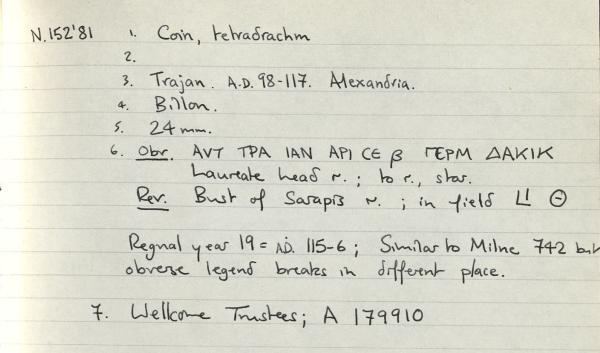 N.152'81 1. Coin, tetradrachm
2.
3. Trajan. A.D. 98-117. Alexandria.
4. Billon.
5. 24 mm.
6. Obv. ΑVΤ ΤΡΑ ΙΑΝ ΑΡΙ CЄ β ΓΕΡΜ ΔΑΚΙΚ
Laureate head r. ; to r., star.
Rev. Bust of Sarapis r. ; in field LI Θ
Regnal year 19 = A.D. 115-6 ; Similar to Milne 742 but
obverse legend breaks in different place.
7. Wellcome Trustees; A 179910